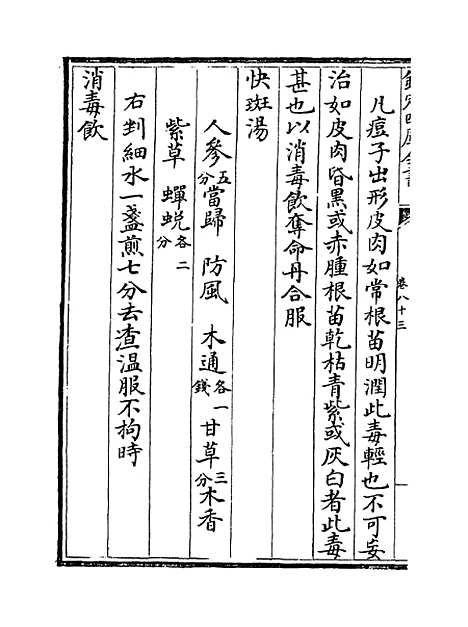 欽定四庫全書
卷八十三
凡痘子出形皮肉如常根苗明潤此毒輕也不可妄
治如皮肉昏黑或赤腫根苗乾枯青紫或灰白者此毒
甚也以消毒飲奪命丹合服
快斑湯
人參五分當歸 防風 木通各一錢甘草三分木香
紫草 蟬蛻各二分
右剉細水一盞煎七分去渣温服不拘時
消毒飲